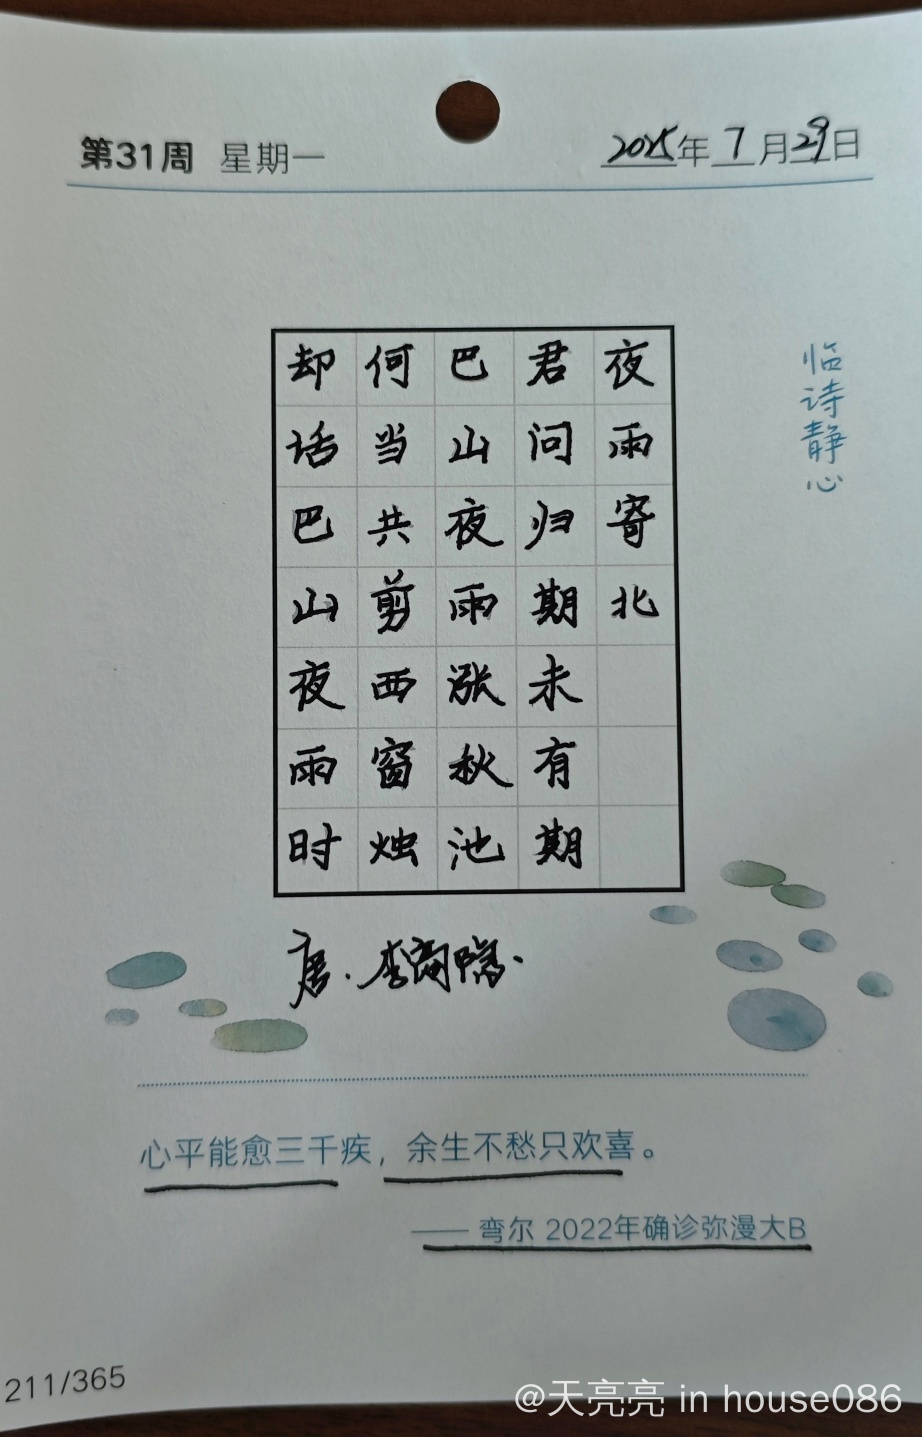 第31周 星期一
2025年7月29日
临诗静心
夜雨寄北
君问归期未有期
巴山夜雨涨秋池
何当共剪西窗烛
却话巴山夜雨时
唐·李商隐·
心平能愈三千疾，余生不愁只欢喜。
—— 弯尔 2022年确诊弥漫大B
211/365
@天亮亮 in house086